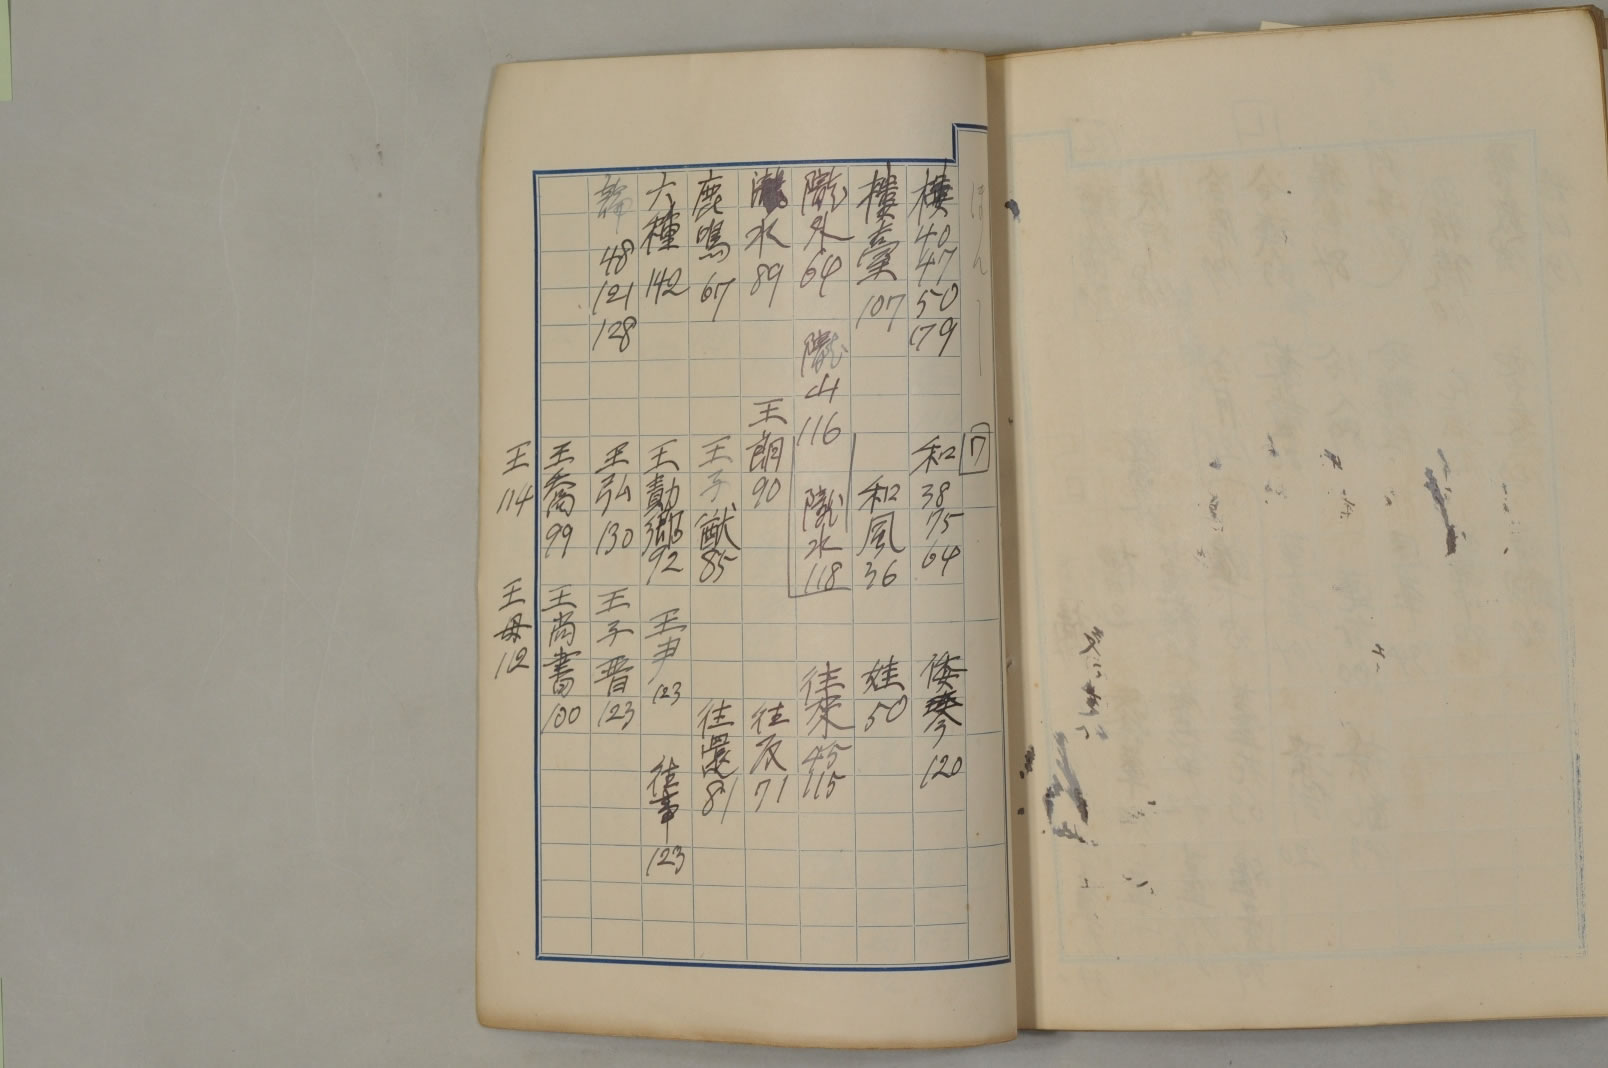 樓 40 47 50 179
樓臺 107
隴外 64 隴山 116 隴水 118
水 89
鹿鳴 67
六種 142
論 48 121 128
ワ
和 38 75 64
和風 36
倭琴 120
娃 50
往来 45 115
王朗 90
往反 71
王子猷 85
往還 81
王勣郷 92
王尹 123
往事 123
王弘 130
王子晋 123
王喬 99
王尚書 100
王 114
王母 112